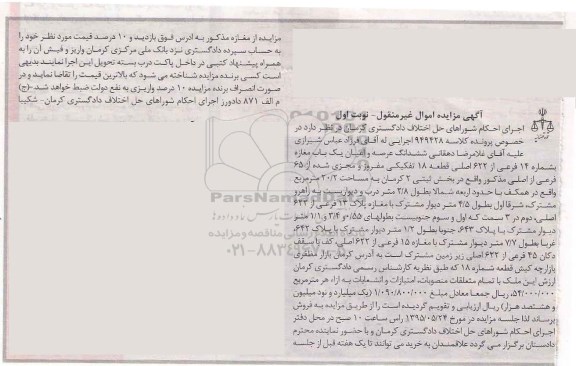 آگهی مزایده اموال غیرمنقول - نوبت اول
اجرای احکام شوراهای حل اختلاف دادگستری کرمان در نظر دارد در
خصوص پرونده کلاسه ۹۴۹۴۲۸ اجرایی له آقای فرزاد عباس شیرازی
علیه آقای غلامرضا دهقانی ششدانگ عرصه و اعیان یک باب مغازه
بشماره ۱۴ فرعی از ۶۲۲ اصلی قطعه ۱۸ تفکیکی مفروز و مجزی شده از ۶۵
فرعی از اصلی مذکور واقع در بخش ثبتی ۲ کرمان به مساحت ۳۰/۲ مترمربع
واقع در همکف با حدود اربعه شمالا بطول ۲/۸ متر درب و دیواریست به راهرو
مشترک، شرقا اول بطول ۴/۵ متر دیوار مشترک با مغازه پلاک ۱۳ فرعی از ۶۲۲
اصلی، دوم در ۳ سمت که اول و سوم جنوبیست بطولهای ۰/۵۵ و ۳/۴ و ۱/۱ متر
دیوار مشترک با پلاک ۶۴۳، جنوبا بطول ۱/۲ متر دیوار مشترک با پلاک ۶۴۲،
غربا بطول ۷/۷ متر دیوار مشترک با مغازه ۱۵ فرعی از ۶۲۲ اصلی، کف با سقف
دکان ۴۵ فرعی از ۶۲۲ اصلی زیر زمین مشترک است به آدرس کرمان بازار مظفری
بازارچه کیش قطعه شماره ۱۸ که طبق نظریه کارشناس رسمی دادگستری کرمان
ارزش این ملک با تمام متعلقات منصوبات، امتیازات و انشعابات به ازاء هر مترمربع
۵۴/۰۰۰/۰۰۰، ریال جمعا معادل مبلغ ۱/۰۹۰/۸۰۰/۰۰۰ (یک میلیارد و نود میلیون
و هشتصد هزار) ریال ارزیابی و تقویم گردیده است را از طریق مزایده به فروش
برساند لذا جلسه مزایده در مورخ ۱۳۹۵/۰۵/۲۴ راس ساعت ۱۰ صبح در محل دفتر
اجرای احکام شوراهای حل اختلاف دادگستری کرمان و با حضور نماینده محترم
دادستان برگزار می گردد علاقمندان به خرید می توانند تا یک هفته قبل از جلسه
مزایده از مغازه مذکور به آدرس فوق بازدید و ۱۰ درصد قیمت مورد نظر خود را
به حساب سپرده دادگستری نزد بانک ملی مرکزی کرمان واریز و فیش آن را به
همراه پیشنهاد کتبی در داخل پاکت درب بسته تحویل این اجرا نمایند بدیهی
است کسی برنده مزایده شناخته می شود که بالاترین قیمت را تقاضا نماید و در
صورت انصراف برنده مزایده ۱۰ درصد واریزی به نفع دولت ضبط خواهد شد -(ج)
م الف ۸۷۱ دادورز اجرای احکام شوراهای حل اختلاف دادگستری کرمان - شکیبا
ParsNamadData
۰۲۱-۸۸۳۴۹۶۷۰